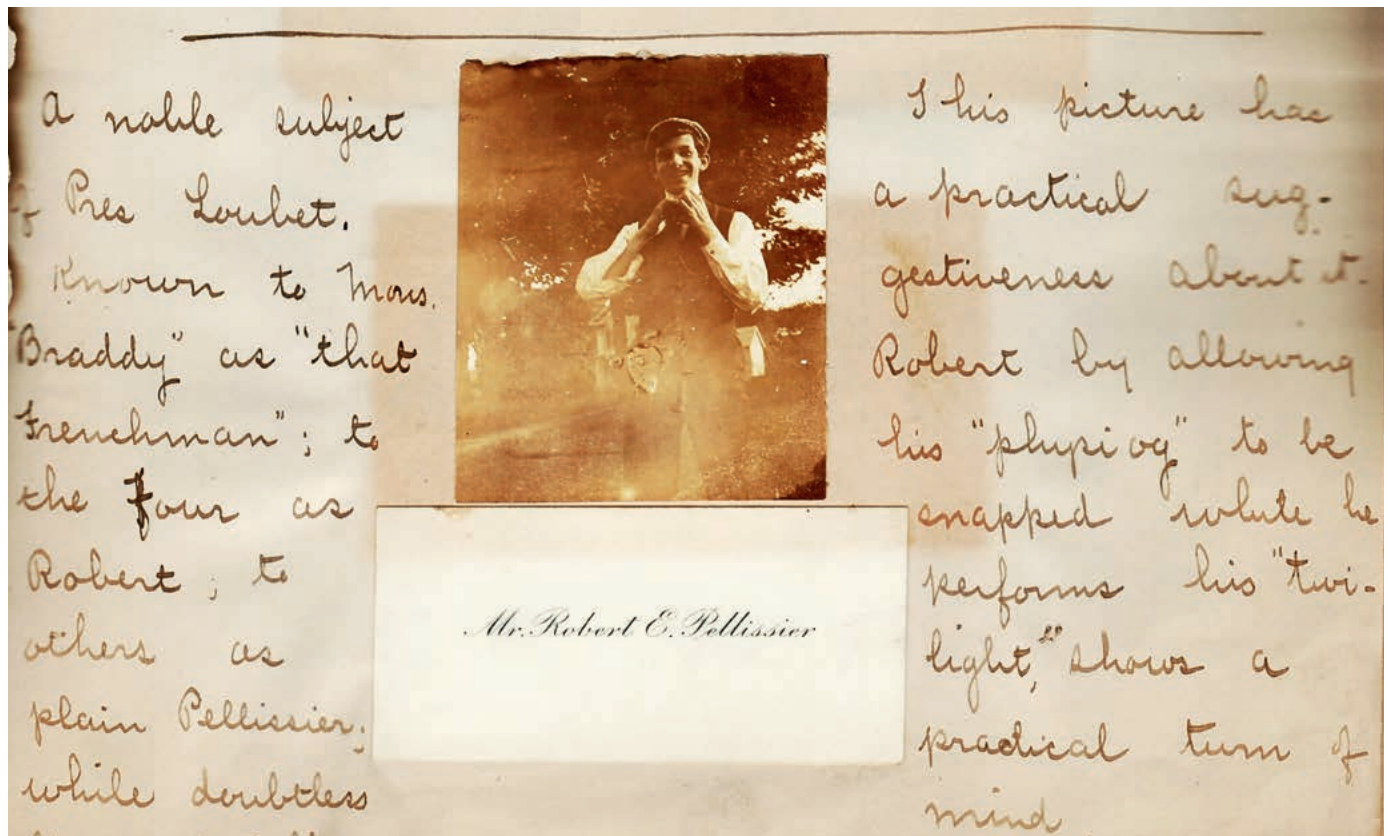 A noble subject
of Pres Loubet.
Known to "Mons.
Braddy" as "that
Frenchman"; to
the Four as
Robert; to
others as
plain Pellissier;
while doubtless
Mr. Robert E. Pellissier
This picture has
a practical sug-
gestiveness about it.
Robert by allowing
his "phypiog" to be
snapped while he
performs his "twi-
light," shows a
practical turn of
mind